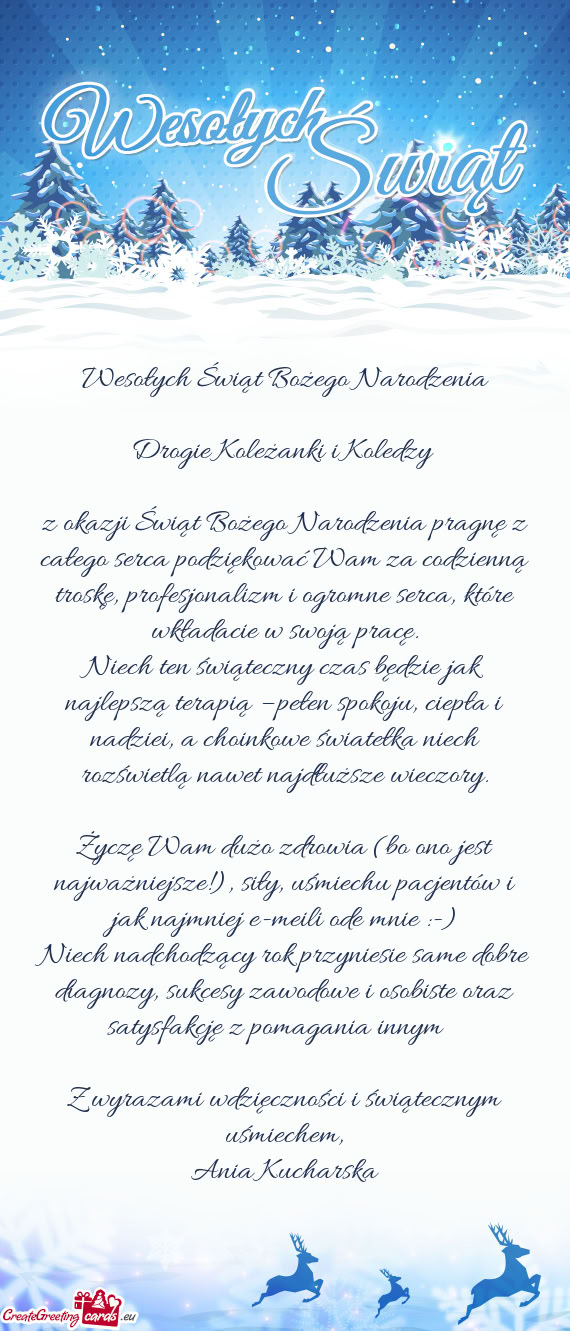 Wesołych
Świąt
Wesołych Świąt Bożego Narodzenia
Drogie Koleżanki i Koledzy
z okazji Świąt Bożego Narodzenia pragnę z
całego serca podziękować Wam za codzienną
troskę, profesjonalizm i ogromne serca, które
wkładacie w swoją pracę.
Niech ten świąteczny czas będzie jak
najlepszą terapią –pełen spokoju, ciepła i
nadziei, a choinkowe światełka niech
rozświetlą nawet najdłuższe wieczory.
Życzę Wam dużo zdrowia (bo ono jest
najważniejsze!) , siły, uśmiechu pacjentów i
jak najmniej e-meili ode mnie :-)
Niech nadchodzący rok przyniesie same dobre
diagnozy, sukcesy zawodowe i osobiste oraz
satysfakcję z pomagania innym
Z wyrazami wdzięczności i świątecznym
uśmiechem,
Ania Kucharska
CreateGreeting cards .eu